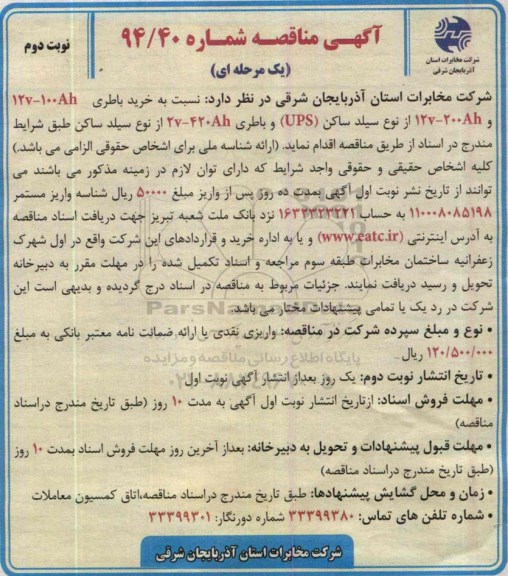 آگهـی مناقصه شماره ۹۴/۴۰
نوبت دوم
(یک مرحله ای)
شرکت مخابرات استان
آذربایجان شرقی
شرکت مخابرات استان آذربایجان شرقی در نظر دارد: نسبت به خرید باطری ۱۲v-۱۰۰Ah
و ۱۲v-۲۰۰Ah از نوع سیلد ساکن (UPS) و باطری ۲v-۴۲۰Ah از نوع سیلد ساکن طبق شرایط
مندرج در اسناد از طریق مناقصه اقدام نماید. (ارائه شناسه ملی برای اشخاص حقوقی الزامی می باشد.)
کلیه اشخاص حقیقی و حقوقی واجد شرایط که دارای توان لازم در زمینه مذکور می باشند می
توانند از تاریخ نشر نوبت اول آگهی بمدت ده روز پس از واریز مبلغ ۵۰۰۰۰ ریال شناسه واریز مستمر
۱۱۰۰۰۸۰۸۵۱۹۸ به حساب ۱۶۳۳۳۲۳۲۲۱ نزد بانک ملت شعبه تبریز جهت دریافت اسناد مناقصه
به آدرس اینترنتی (www.eatc.ir) و یا به اداره خرید و قراردادهای این شرکت واقع در اول شهرک
زعفرانیه ساختمان مخابرات طبقه سوم مراجعه و اسناد تکمیل شده را در مهلت مقرر به دبیرخانه
تحویل و رسید دریافت نمایند. جزئیات مربوط به مناقصه در اسناد درج گردیده و بدیهی است این
شرکت در رد یک یا تمامی پیشنهادات مختار می باشد.
• نوع و مبلغ سپرده شرکت در مناقصه: واریزی نقدی یا ارائه ضمانت نامه معتبر بانکی به مبلغ
۱۲۰/۵۰۰/۰۰۰ ریال
• تاریخ انتشار نوبت دوم: یک روز بعداز انتشار آگهی نوبت اول
• مهلت فروش اسناد: ازتاریخ انتشار نوبت اول آگهی به مدت ۱۰ روز (طبق تاریخ مندرج دراسناد
مناقصه)
• مهلت قبول پیشنهادات و تحویل به دبیرخانه: بعداز آخرین روز مهلت فروش اسناد بمدت ۱۰ روز
(طبق تاریخ مندرج دراسناد مناقصه)
• زمان و محل گشایش پیشنهادها: طبق تاریخ مندرج دراسناد مناقصه،اتاق کمسیون معاملات
• شماره تلفن های تماس: ۳۳۳۹۹۳۸۰ شماره دورنگار: ۳۳۳۹۹۳۰۱
شرکت مخابرات استان آذربایجان شرقی
پایگاه اطلاع رسانی مناقصه و مزایده